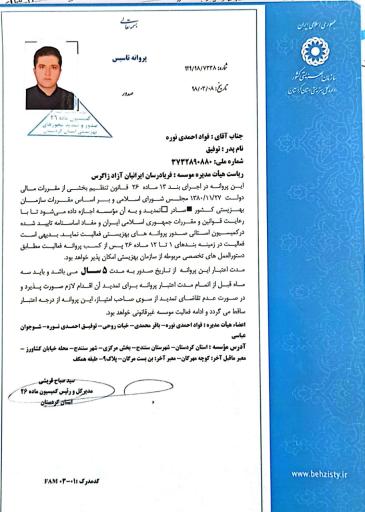 جمهوری اسلامی ایران
سازمان بهزیستی کشور
اداره کل بهزیستی استان کردستان
باسمه تعالی
پروانه تاسیس
شماره: ۱۴۹/۹۸/۷۲۳۸
تاریخ: ۹۸/۰۳/۰۸
صدور
کمیسیون ماده ۲۶
صدور و تمدید مجوزهای
بهزیستی استان کردستان
جناب آقای : فواد احمدی نوره
نام پدر : توفیق
شماره ملی: ۳۷۳۲۸۹۰۸۸۰
ریاست هیأت مدیره موسسه : فریادرسان ایرانیان آزاد زاگرس
این پروانه در اجرای بند ۱۳ ماده ۲۶ قانون تنظیم بخشی از مقررات مالی
دولت ۱۳۸۰/۱۱/۲۷ مجلس شورای اسلامی و بر اساس مقررات سازمان
بهزیستی کشور ■صادر □تمدید و به آن مؤسسه اجازه داده می‌شود تا با
رعایت قوانین و مقررات جمهوری اسلامی ایران و مفاد اساسنامه تایید شده
درکمیسیون استانی صدور پروانه های بهزیستی فعالیت نماید. بدیهی است
فعالیت در زمینه بندهای ۱ تا ۱۲ ماده ۲۶ پس از کسب پروانه فعالیت مطابق
دستورالعمل های تخصصی مربوطه از سازمان بهزیستی امکان پذیر خواهد بود.
مدت اعتبار این پروانه از تاریخ صدور به مدت ۵ سال می باشد و باید سه
ماه قبل از اتمام مدت اعتبار پروانه برای تمدید آن اقدام لازم صورت پذیرد و
در صورت عدم تقاضای تمدید از سوی صاحب امتیاز، این پروانه از درجه اعتبار
ساقط می گردد و ادامه فعالیت موسسه غیرقانونی خواهد بود.
اعضاء هیأت مدیره : فواد احمدی نوره- باقر محمدی- خبات روحی- توفیق احمدی نوره- شوجوان
عباسی
آدرس مؤسسه : استان کردستان- شهرستان سنندج- بخش مرکزی- شهر سنندج- محله خیابان کشاورز -
معبر ماقبل آخر: کوچه مهرگان- معبر آخر: بن بست مرگان- پلاک۹- طبقه همکف
سید صباح قریشی
مدیرکل و رئیس کمیسیون ماده ۲۶
استان کردستان
کدمدرک :FAM ۰۳-۰۱
www.behzisty.ir